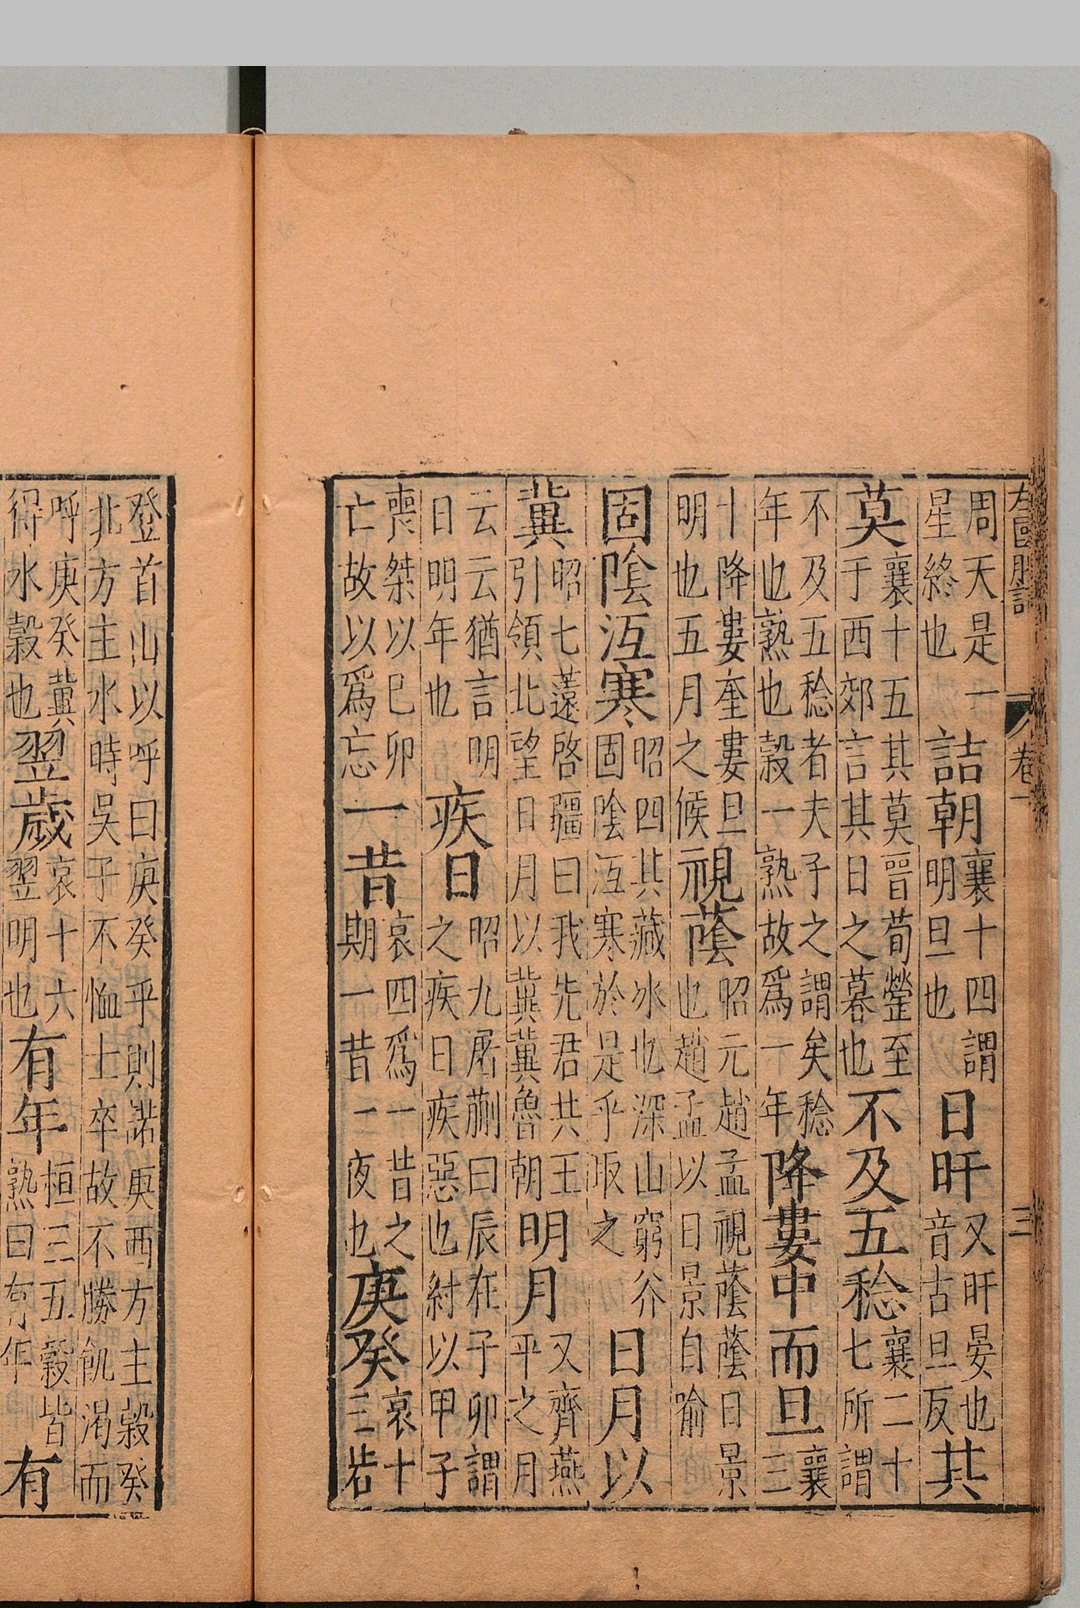 左國腴詞 卷一 三
周天是一星終也詰朝襄十四謂明旦也日旰又旰晏也音古旦反其
莫襄十五其莫晉荀罃至于西郊言其日之暮也不及五稔襄二十七所謂
不及五稔者夫子之謂矣稔年也熟也穀一熟故爲一年降婁中而旦襄三
十降婁奎婁旦明也五月之候視蔭昭元趙孟視蔭蔭日景也趙孟以日景自喻
固陰沍寒昭四其藏冰也深山窮谷固陰沍寒於是乎取之日月以
冀昭七薳啓疆曰我先君共王引領北望日月以冀冀魯朝明月又齊燕平之月
云云猶言明日明年也疾日昭九屠蒯曰辰在子卯謂之疾日疾惡也紂以甲子
喪桀以巳卯亡故以爲忘一昔哀四爲一昔之期一昔二夜也庚癸哀十三若
登首山以呼曰庚癸乎則諾庚西方主穀癸北方主水時吳子不恤士卒故不勝飢渴而
呼庚癸冀得水穀也翌歲哀十六翌明也有年桓三五穀皆熟曰有年有